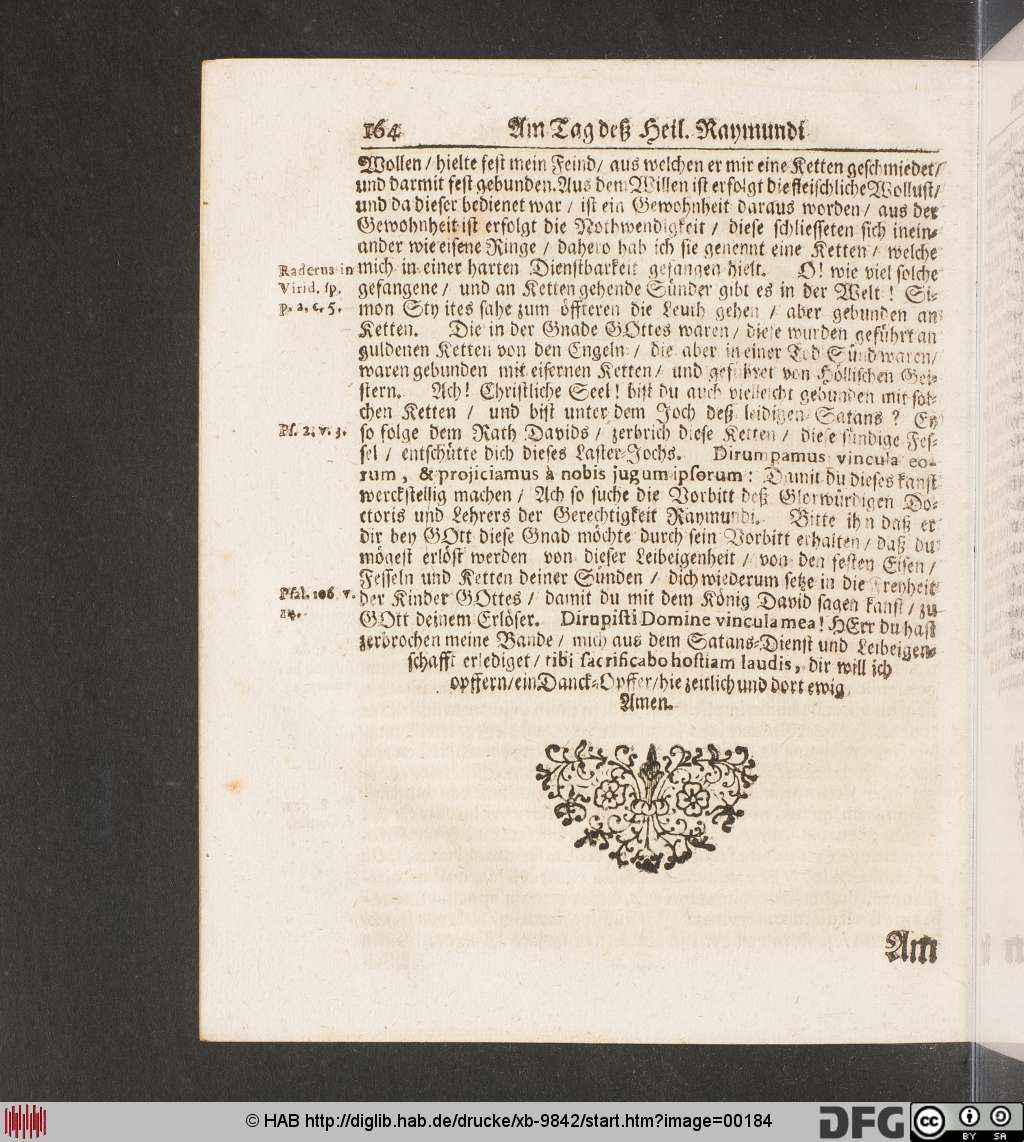 164 Am Tag deß Heil. Raymundi
Wollen / hielte fest mein Feind / aus welchen er mir eine Ketten geschmiedet /
und darmit fest gebunden. Aus dem Willen ist erfolgt die fleischliche Wollust /
und da dieser bedienet war / ist ein Gewohnheit daraus worden / aus der
Gewohnheit ist erfolgt die Nothwendigkeit / diese schliesseten sich inein-
ander wie eisene Ringe / dahero hab ich sie genennt eine Ketten / welche
Raderus in mich in einer harten Dienstbarkeit gefangen hielt. O! wie viel solche
Virid. sp. gefangene / und an Ketten gehende Sünder gibt es in der Welt! Si-
p. 2. c. 5. mon Stylites sahe zum öffteren die Leuth gehen / aber gebunden an
Ketten. Die in der Gnade GOttes waren / diese wurden geführt an
guldenen Ketten von den Engeln / die aber in einer Tod Sünd waren /
waren gebunden mit eisernen Ketten / und geführet von Höllischen Gei-
stern. Ach! Christliche Seel! bist du auch vielleicht gebunden mit sol-
chen Ketten / und bist unter dem Joch deß leidigen Satans? Ey
Ps. 2. v. 3. so folge dem Rath Davids / zerbrich diese Ketten / diese sündige Fes-
sel / entschütte dich dieses Laster-Jochs. Dirumpamus vincula eo-
rum, & projiciamus à nobis jugum ipsorum: Damit du dieses kanst
werckstellig machen / Ach so suche die Vorbitt deß Glorwürdigen Do-
ctoris und Lehrers der Gerechtigkeit Raymundi. Bitte ihn daß er
dir bey GOtt diese Gnad möchte durch sein Vorbitt erhalten / daß du
mögest erlöst werden von dieser Leibeigenheit / von den festen Eisen /
Fesseln und Ketten deiner Sünden / dich wiederum setze in die Freyheit
Psal. 106. v. der Kinder GOttes / damit du mit dem König David sagen kanst / zu
14. GOtt deinem Erlöser. Dirupisti Domine vincula mea! HErr du hast
zerbrochen meine Bande / mich aus dem Satans-Dienst und Leibeigen-
schafft erlediget / tibi sacrificabo hostiam laudis, dir will ich
opffern / ein Danck-Opffer / hie zeitlich und dort ewig
Amen.
Am
© HAB http://diglib.hab.de/drucke/xb-9842/start.htm?image=00184
DFG
cc BY SA